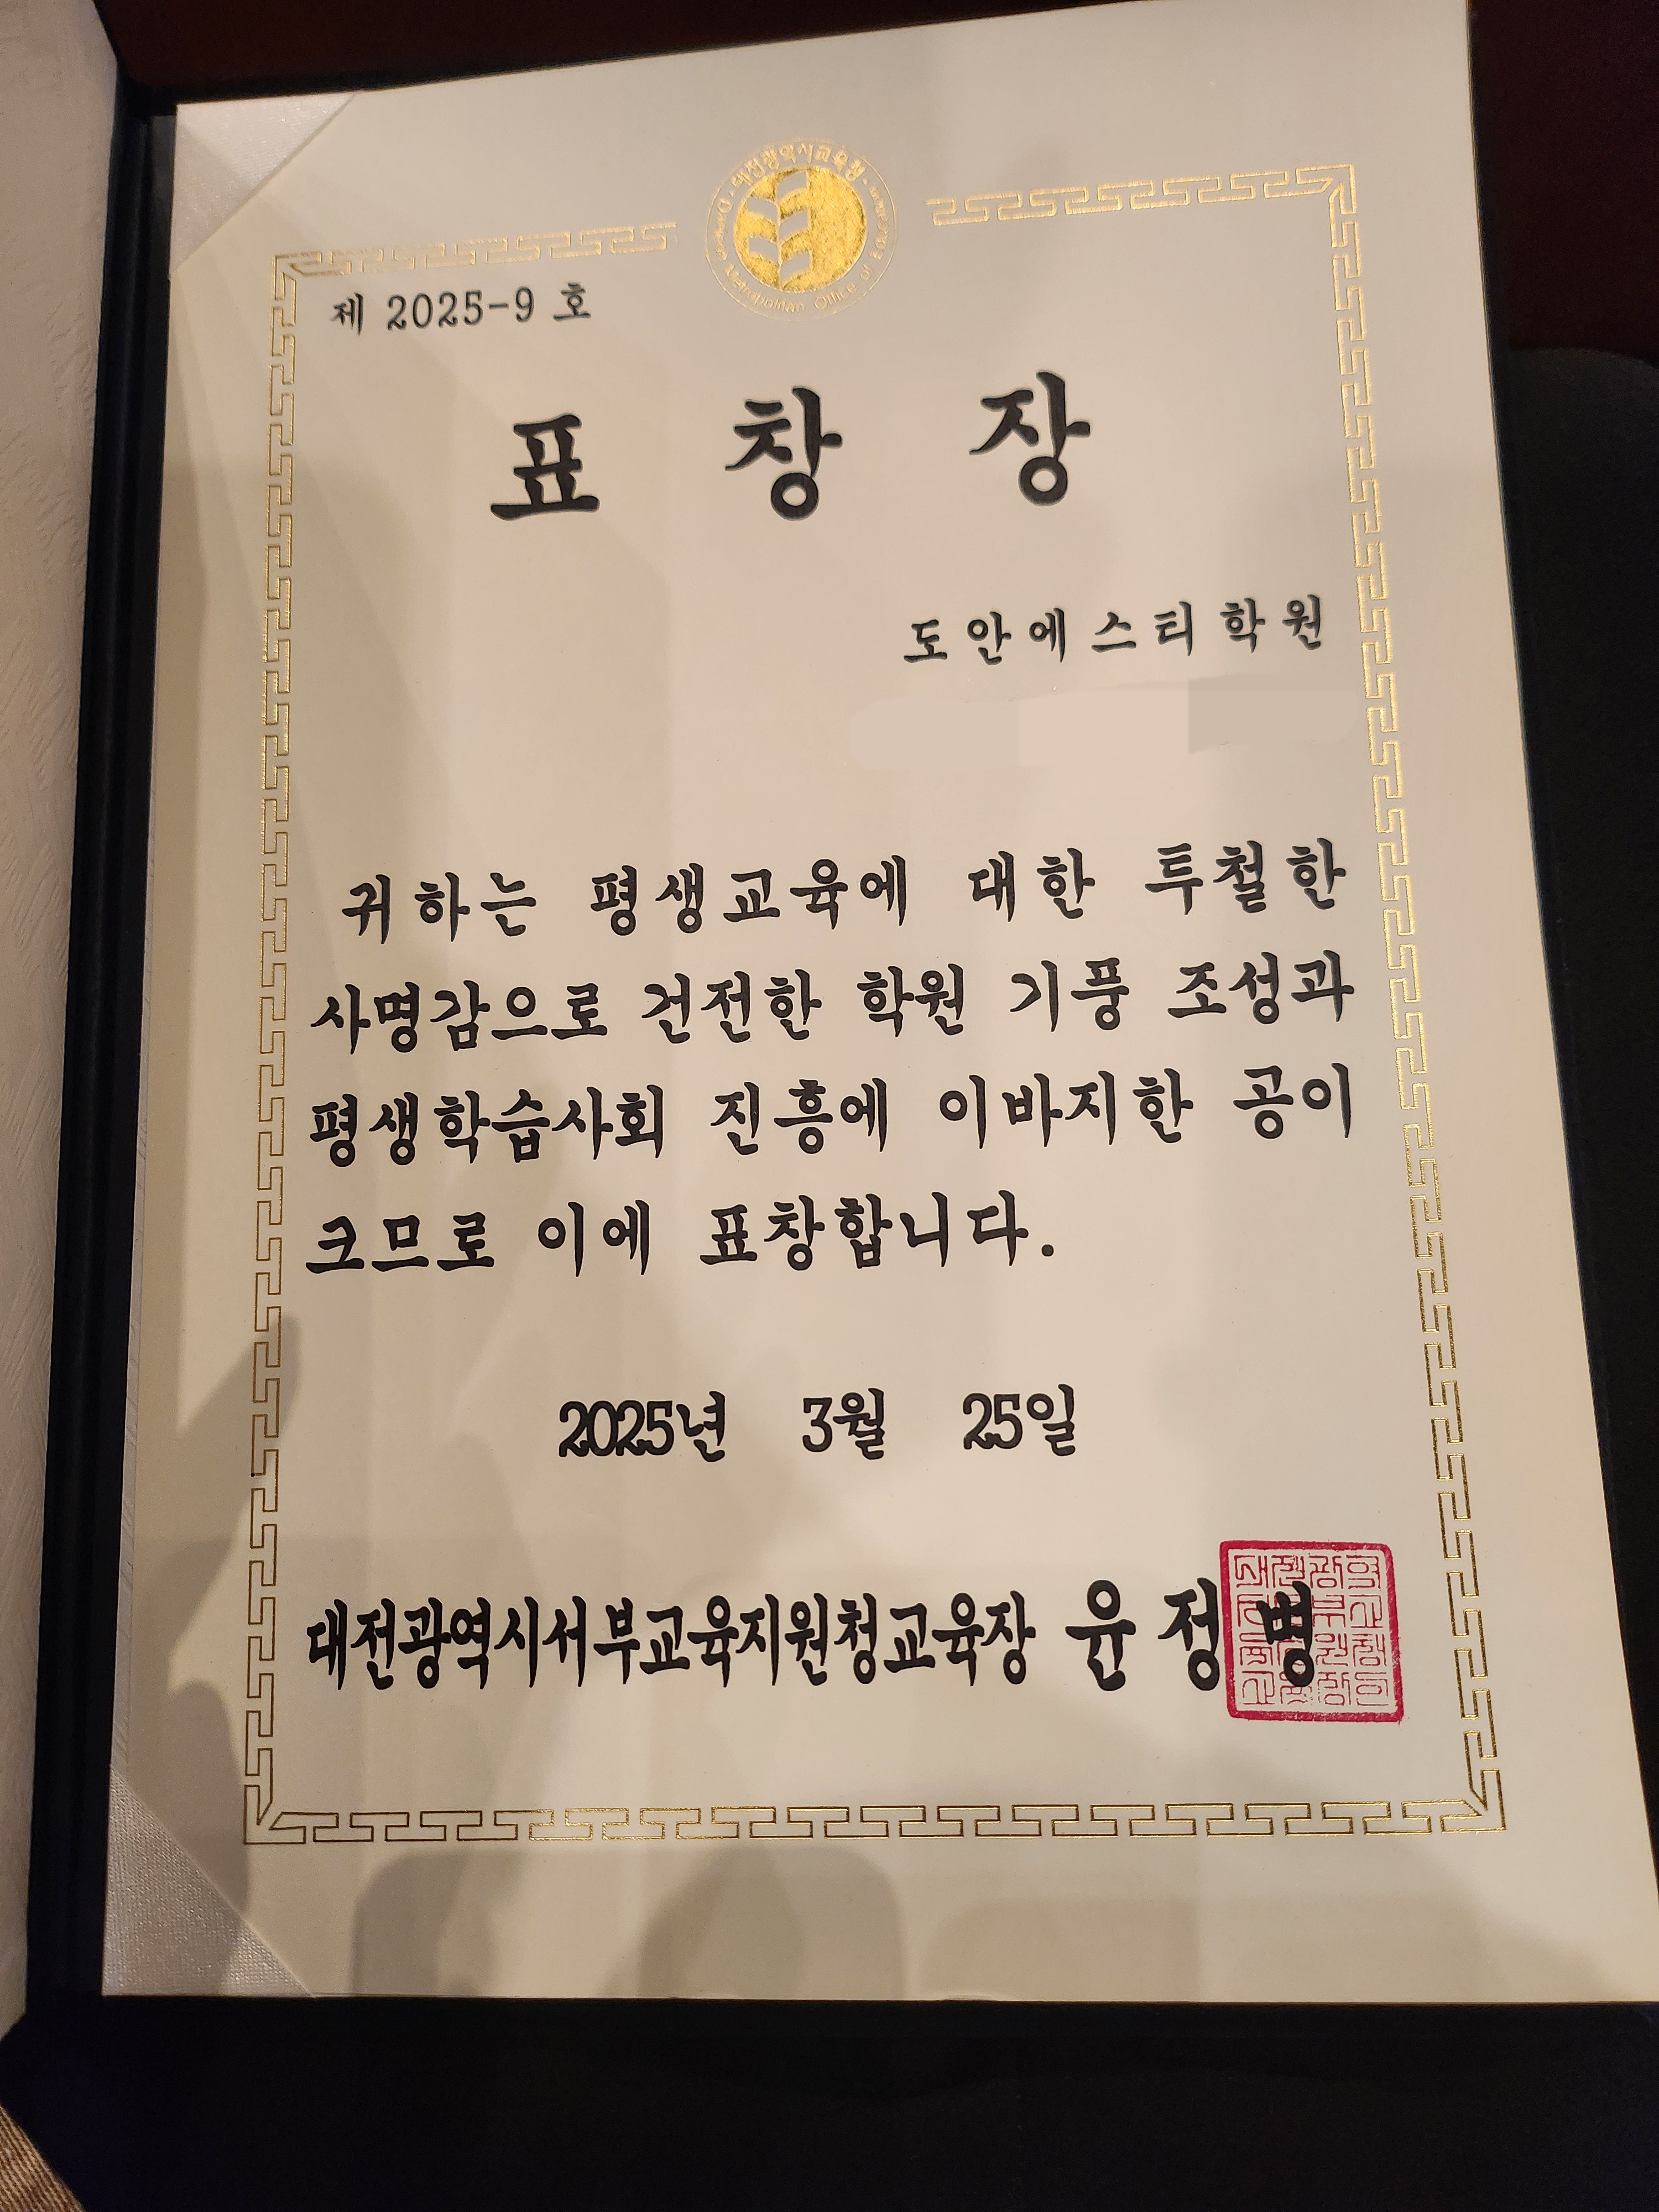 대전광역시교육청
Daejeon Metropolitan Office of Education
제 2025-9 호
표 창 장
도안에스티학원
귀하는 평생교육에 대한 투철한
사명감으로 건전한 학원 기풍 조성과
평생학습사회 진흥에 이바지한 공이
크므로 이에 표창합니다.
2025년 3월 25일
대전광역시서부교육지원청교육장 윤정병